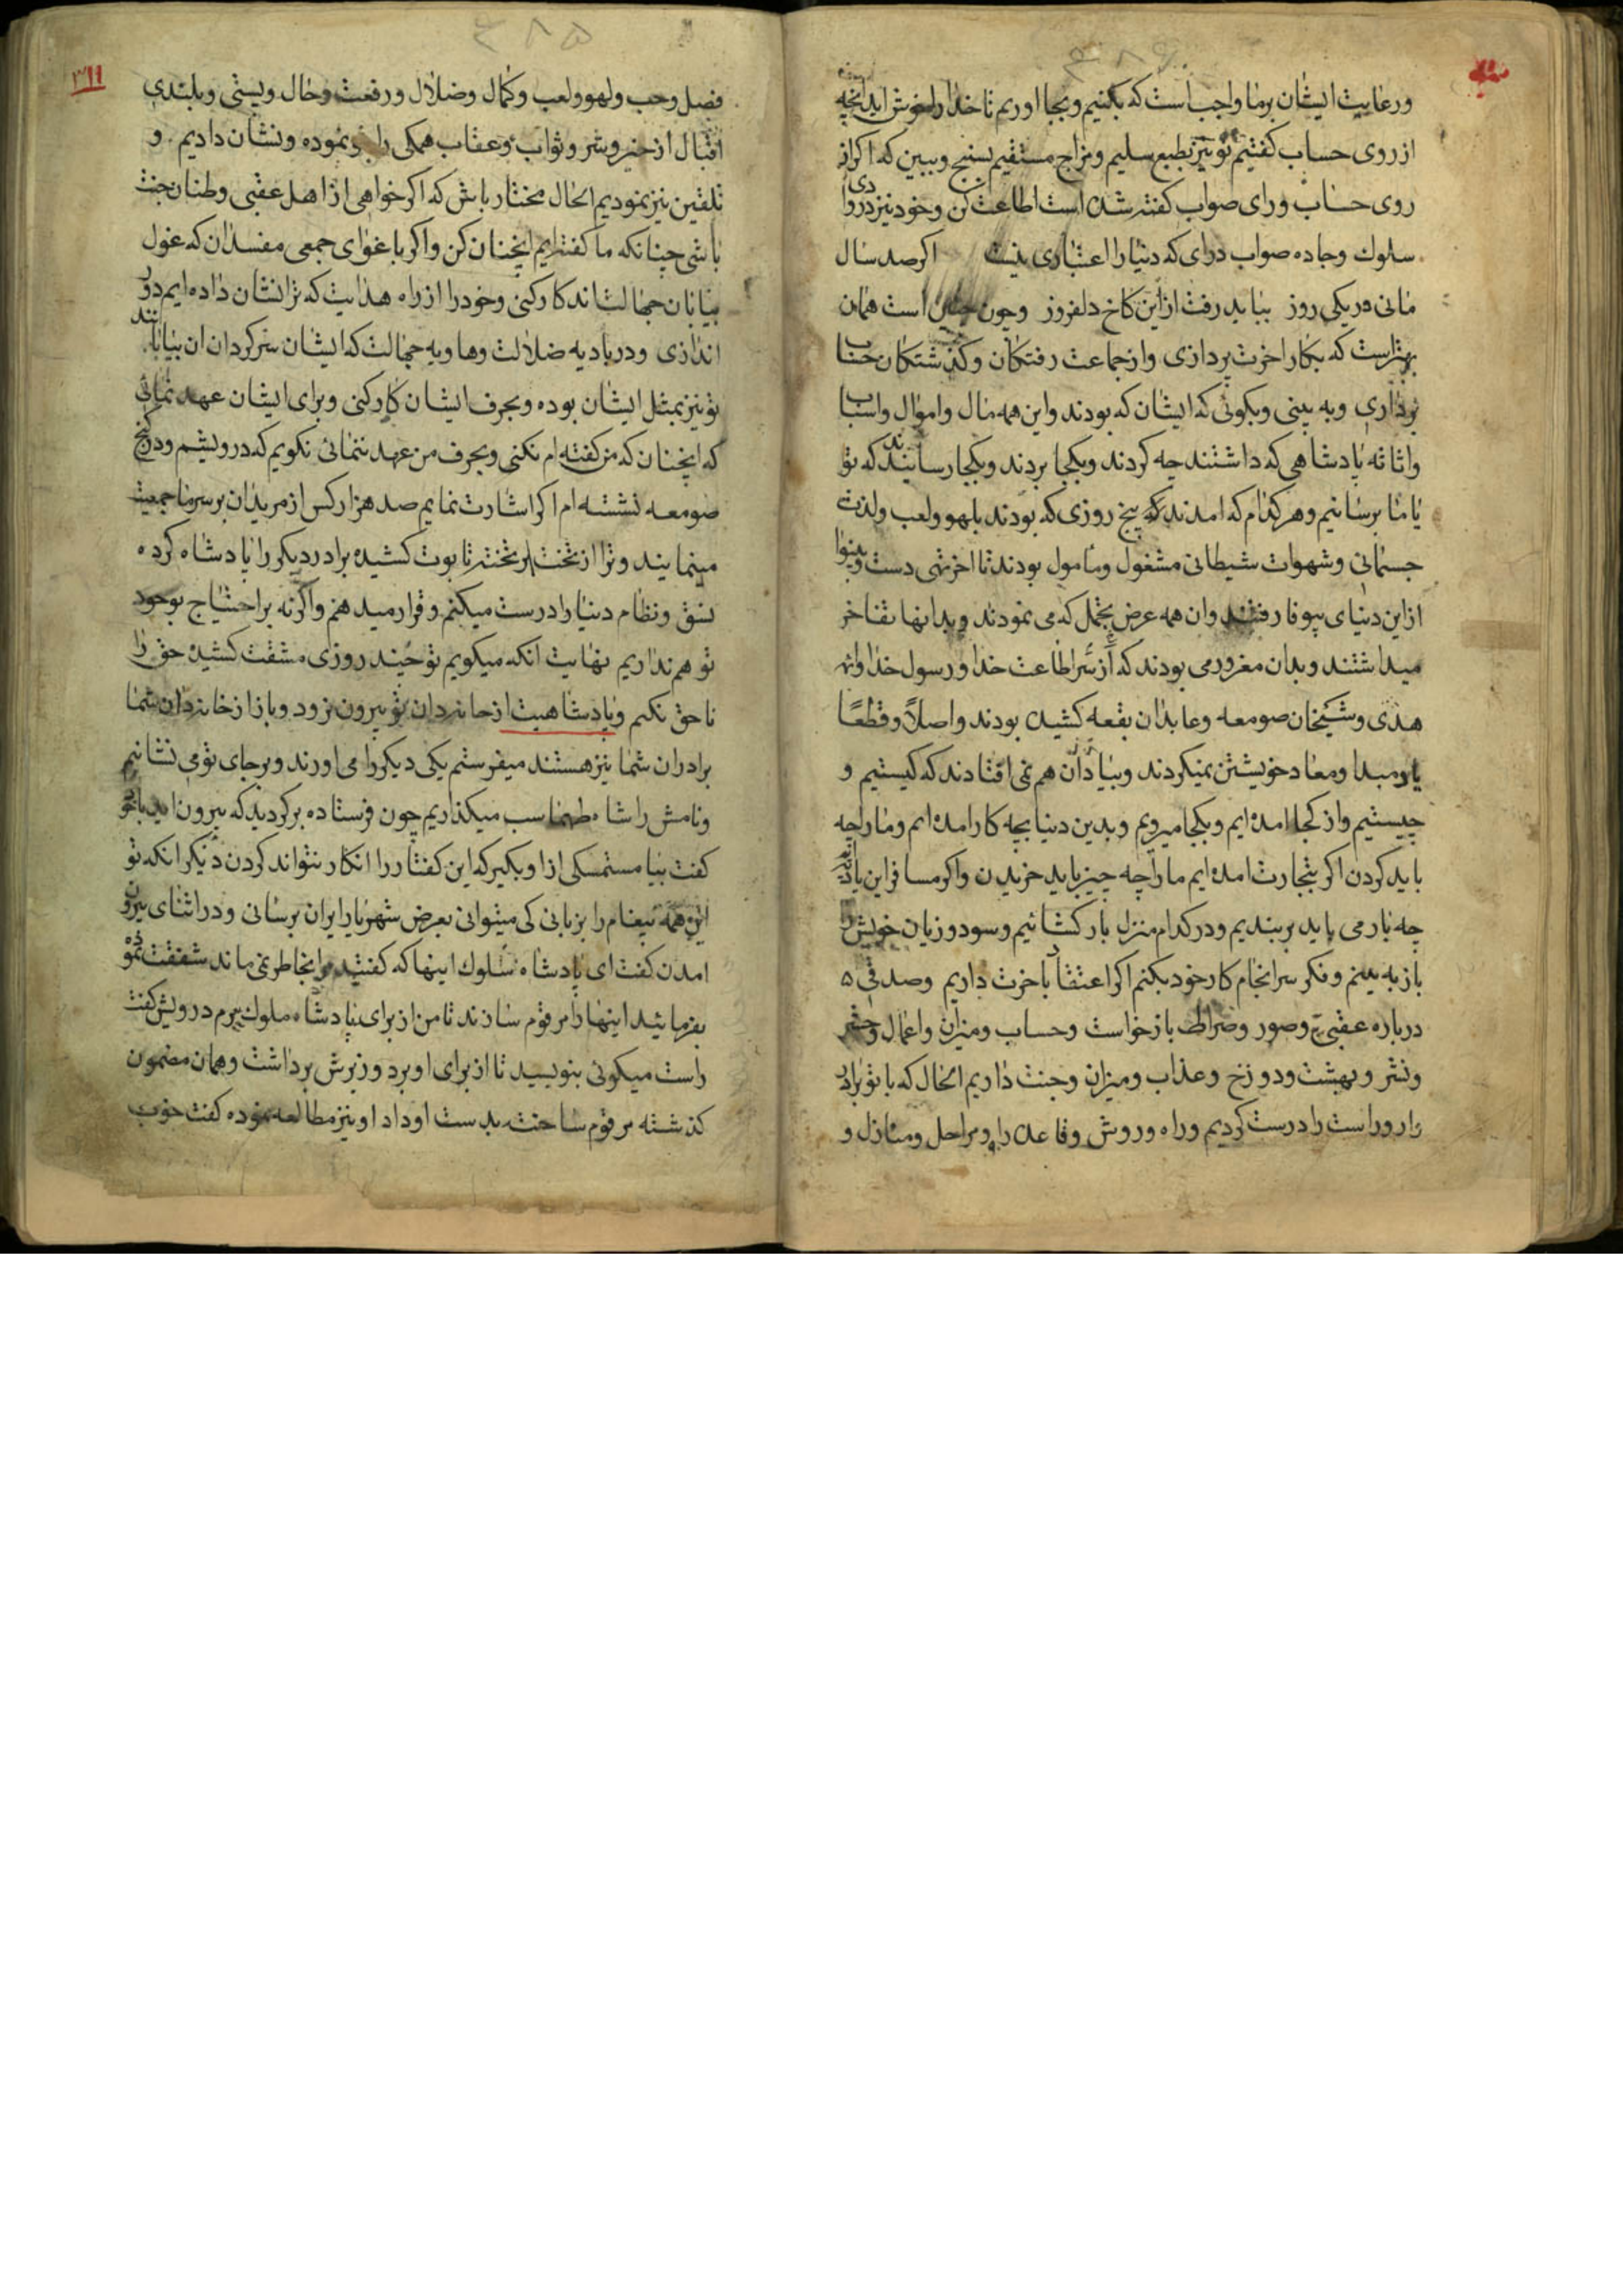 ورعایت ایشان برما واجب است که بکنیم وبجا اوریم تا خدا را خوش اید انچه
از روی حساب کفتیم تو نیز بطبع سلیم ومزاج مستقیم بسنج وببین که اکراز
روی حساب ورای صواب کفته شده است اطاعت کن وخود نیز در وادی
سلوك وجاده صواب درای که دنیا را اعتباری نیست اکر صد سال
مانی ور یکی روز بباید رفت ازاین کاخ دلفروز وچون چنین است همان
بهتراست که بکار اخرت پردازی وازجماعت رفتکان وکذشتکان حساب
برداری وبه بینی وبکوئی که ایشان که بودند واین همه مال واموال واسباب
واثاثه پادشاهی که داشتند چه کردند وبکجا بردند وبکجا رسانیدند که تو
یا ما برسانیم وهرکدام که امدند که پنج روزی که بودند بلهو ولعب ولذت
جسمانی وشهوات شیطانی مشغول ومأمول بودند تا اخر تهی دست وبینوا
ازاین دنیای بیوفا رفتند وان همه عرض تجمل که می نمودند وبدانها تفاخر
میداشتند وبدان مغرور می بودند که ازسر اطاعت خدا ورسول خدا وائمه
هدی وشیخان صومعه وعابدان بقعه کشیده بودند واصلاً وقطعًا
یاد مبدا ومعاد خویشتن نمیکردند وبیاد آن هم نمی افتادند که کیستیم و
چیستیم واز کجا امده ایم وبکجا میرویم وبدین دنیا بچه کار امده ایم وما را چه
باید کردن اکر بتجارت امده ایم ما را چه چیز باید خریدن واکر مسافر این بادیه
چه بار می باید بربندیم ودر کدام منزل بار کشائیم وسود وزیان خویش را
باز به بینم وفکر سرانجام کار خود بکنم اکر اعتقاد باخرت داریم وصدقی
درباره عقبی وصور وصراط بازخواست وحساب ومیزان واعمال وحشر
ونشر وبهشت ودوزخ وعذاب ومیزان وجنت داریم الحال که با تو برادر
وار وراست را درست کردیم وراه وروش وقاعده را ومراحل ومنازل و
۳۱۱
فصل وحب ولهو ولعب وکمال وضلال ورفعت وحال وپستی وبلندی
اقبال ازخیر وشر وثواب وعقاب همکی را نموده ونشان دادیم و
تلقین نیز نمودیم الحال مختار باش که اکر خواهی از اهل عقبی وطنان جنت
باشی چنانکه ما کفته ایم انچنان کن واکر باغوای جمعی مفسدان که غول
بیابان جهالت اند کار کنی وخود را از راه هدایت که ترا نشان داده ایم دور
اندازی ودر بادیه ضلالت وهاویه جهالت که ایشان سرکردان ان بیابانند
تو نیز بمثل ایشان بوده وبحرف ایشان کار کنی وبرای ایشان عهد نمائی
که انچنان که من کفته ام نکنی وبحرف من عهد ننمائی نکویم که درویشم ودر کنج
صومعه نشسته ام اکر اشارت نمایم صد هزار کس از مریدان برسر ما جمعیت
مینمایند وترا از تخت بر تخته تابوت کشیده برادر دیکر را پادشاه کرده
نسق ونظام دنیا را درست میکنم وقرار میدهم واکرنه براحتیاج بوجود
تو هم نداریم نهایت انکه میکویم تو چند روزی مشقت کشیده حق را
ناحق نکنم وپادشاهیت از خانه دان تو بیرون نرود وباز از خانه دان شما
برادران شما نیز هستند میفرستم یکی دیکر را می اورند وبرجای تو می نشانیم
ونامش را شاه طهماسب میکذاریم چون فرستاده برکردید که بیرون اید باتو
کفت بیا مستمسکی ازا وبکیر که این کفتار را انکار نتواند کردن دیکر انکه تو
این همه پیغام را بزبانی کی میتوانی بعرض شهریار ایران برسانی ودر اثنای بیرون
امدن کفت ای پادشاه سلوك اینها که کفتید مرا بخاطر نمی ماند شفقت نموده
بفرمائید اینها را مرقوم سازند تا من از برای پادشاه ملوك ببرم درویش کفت
راست میکوئی بنویسید تا از برای او برد وزیرش برداشت وهمان مضمون
کذشته مرقوم ساخته بدست او داد او نیز مطالعه نموده کفت خوب